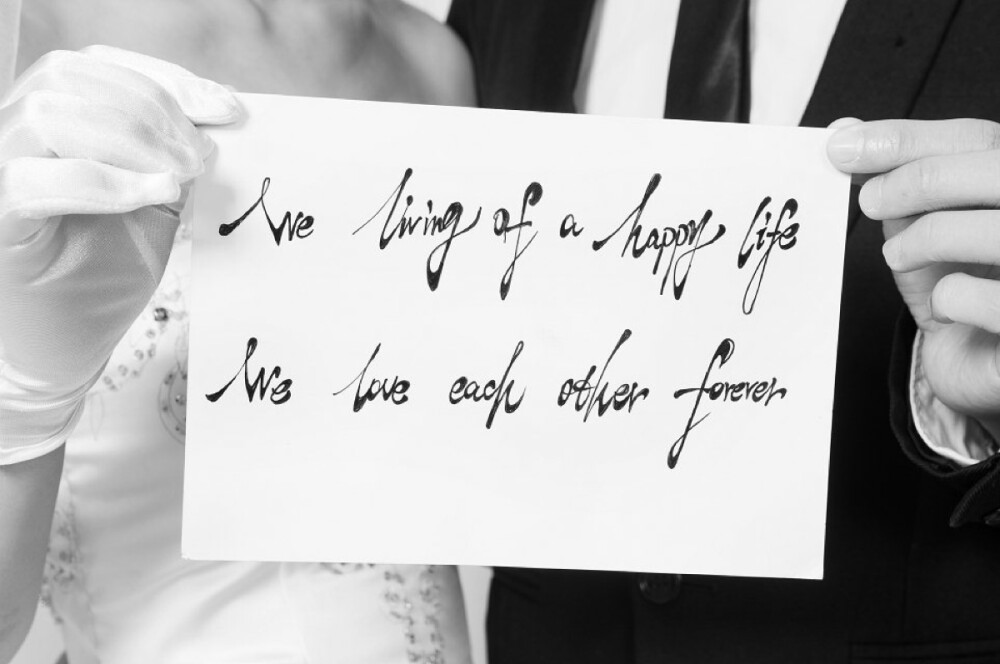 We living of a happy life
We love each other forever